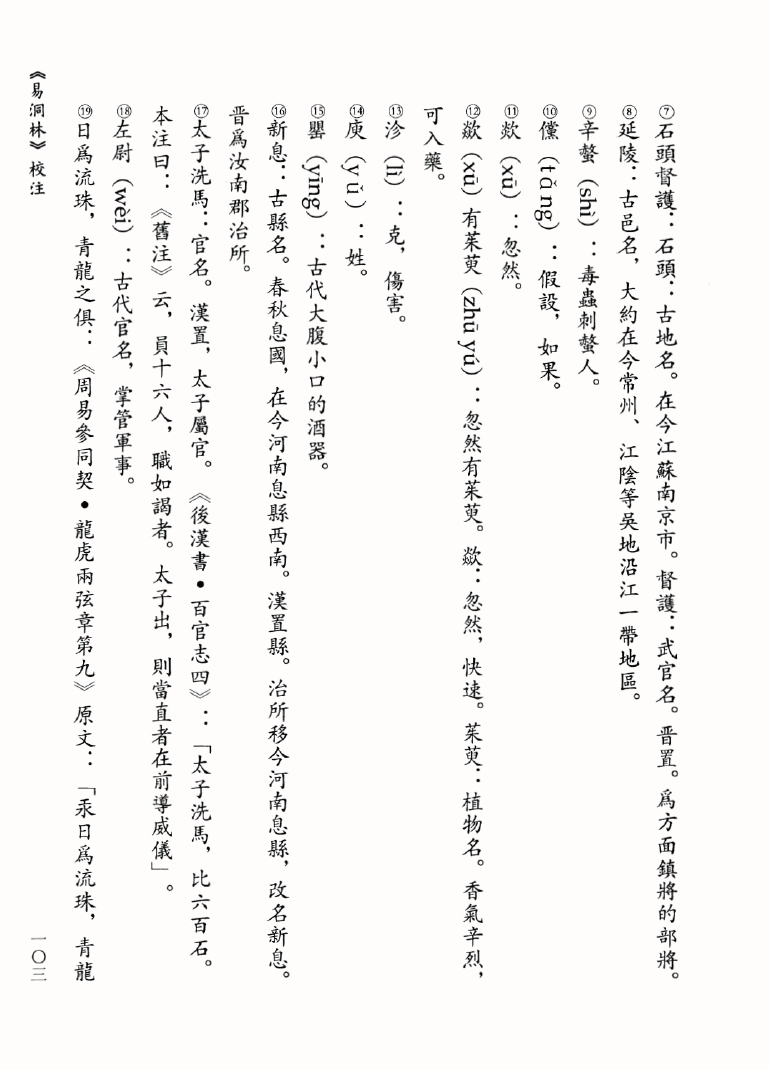 ⑦石頭督護：石頭：古地名。在今江蘇南京市。督護：武官名。晋置。爲方面鎮將的部將。
⑧延陵：古邑名，大約在今常州、江陰等吳地沿江一帶地區。
⑨辛螫（shì）：毒蟲刺螫人。
⑩儻（tǎng）：假設，如果。
⑪欻（xū）：忽然。
⑫歘（xū）有茱萸（zhū yú）：忽然有茱萸。歘：忽然，快速。茱萸：植物名。香氣辛烈，
可入藥。
⑬沴（lì）：克，傷害。
⑭庾（yǔ）：姓。
⑮罌（yīng）：古代大腹小口的酒器。
⑯新息：古縣名。春秋息國，在今河南息縣西南。漢置縣。治所移今河南息縣，改名新息。
晋爲汝南郡治所。
⑰太子洗馬：官名。漢置，太子屬官。《後漢書•百官志四》：「太子洗馬，比六百石。
本注曰：《舊注》云，員十六人，職如謁者。太子出，則當直者在前導威儀」。
⑱左尉（wèi）：古代官名，掌管軍事。
⑲日爲流珠，青龍之俱：《周易參同契•龍虎兩弦章第九》原文：「汞日爲流珠，青龍
《易洞林》校注
一〇三